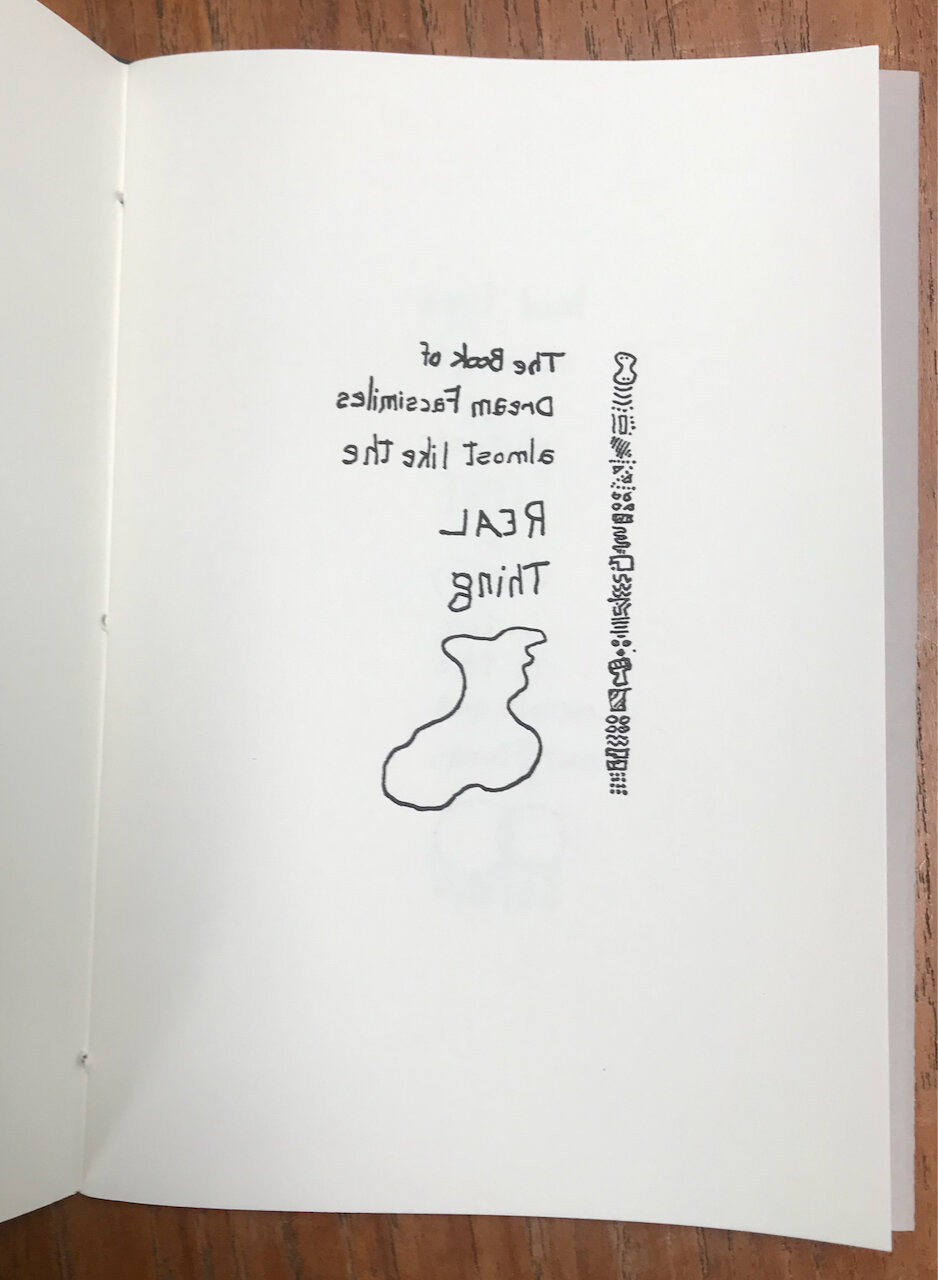 The Book of
Dream Facsimiles
almost like the
REAL
Thing